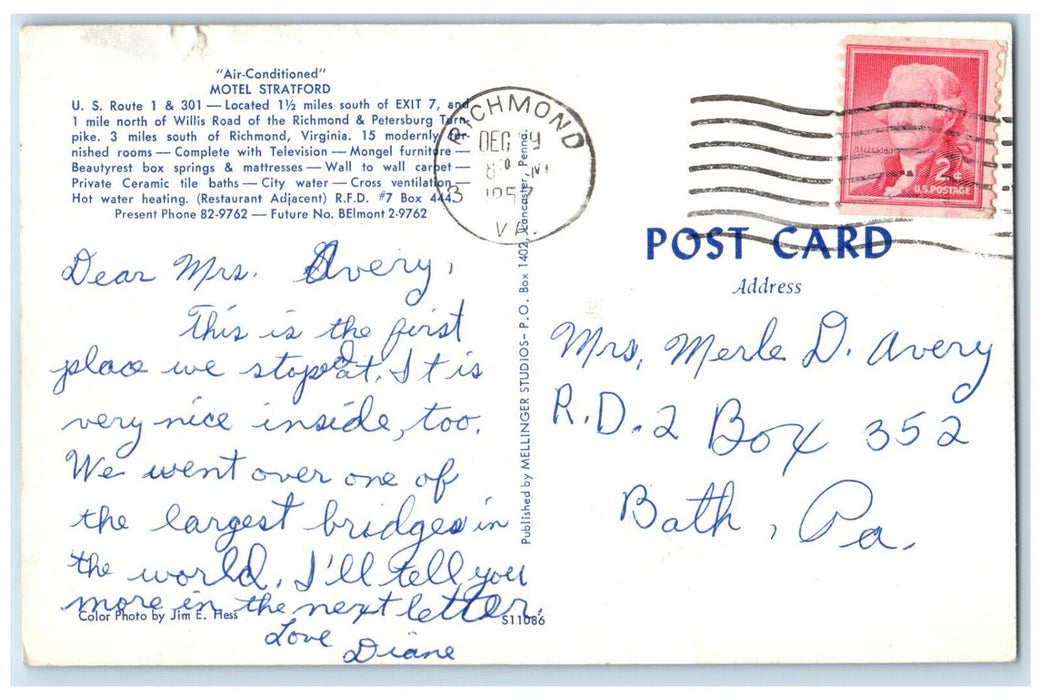 "Air-Conditioned"
MOTEL STRATFORD
U. S. Route 1 & 301 — Located 1½ miles south of EXIT 7, and
1 mile north of Willis Road of the Richmond & Petersburg Turn-
pike. 3 miles south of Richmond, Virginia. 15 modernly fur-
nished rooms — Complete with Television — Mongel furniture —
Beautyrest box springs & mattresses — Wall to wall carpet —
Private Ceramic tile baths — City water — Cross ventilation —
Hot water heating. (Restaurant Adjacent) R.F.D. #7 Box 444
Present Phone 82-9762 — Future No. BElmont 2-9762
RICHMOND
DEC 9
8 M
3 1957
VA.
JEFFERSON
2¢
U.S. POSTAGE
POST CARD
Address
Dear Mrs. Avery,
This is the first
place we stoped at. It is
very nice inside, too.
We went over one of
the largest bridges in
the world. I'll tell you
more in the next letter.
Love
Diane
Color Photo by Jim E. Hess
S11086
Published by MELLINGER STUDIOS - P.O. Box 1402, Lancaster, Penna.
Mrs. Merle D. Avery
R.D. 2 Box 352
Bath, Pa.